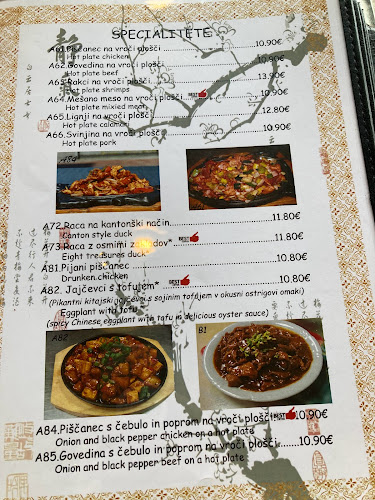 SPECIALITETE
A61.Piščanec na vroči plošči 10.90€
Hot plate chicken
A62.Govedina na vroči plošči 10.90€
Hot plate beef
Rakci na vroči plošči 13.90€
Hot plate shrimps
A64.Mešano meso na vroči plošči
Hot plate mixed meat
A65.Lignji na vroči plošči 12.80€
Hot plate calamari
A66.Svinjina na vroči plošči 10.90€
Hot plate pork
A72.Raca na kantonški način 11.80€
Canton style duck
A73.Raca z osmimi 11.80€
Eight treasures duck
A81.Pijani piščanec 10.80€
Drunken chicken
A82. Jajčevci s tofujem* 10.80€
(Pikantni kitajski jajčevci s sojinim tofujem v okusni ostrigovi omaki)
Eggplant with tofu
(spicy Chinese eggplant with tofu in delicious oyster sauce)
A82
B1
A84.Piščanec s čebulo in poprom na vroči plošči 10.90€
Onion and black pepper chicken on a hot plate
A85.Govedina s čebulo in poprom na vroči plošči 10.90€
Onion and black pepper beef on a hot plate